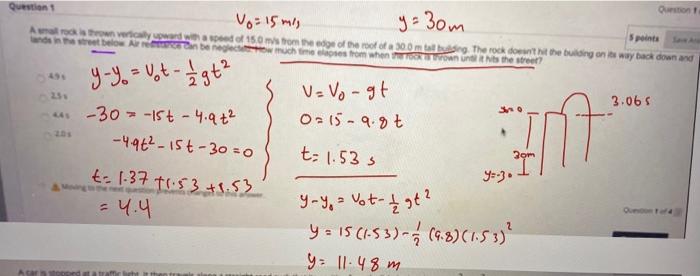 Question 1
Question 1
V₀ = 15 m/s
y = 30m
5 points
A small rock is thrown vertically upward with a speed of 15.0 m/s from the edge of the roof of a 30.0 m tall building. The rock doesn't hit the building on its way back down and
lands in the street below. Air resistance can be neglected. How much time elapses from when the rock is thrown until it hits the street?
4.9 s
2.5 s
4.4 s
2.0 s
y-y₀ = V₀t - 1/2 gt²
-30 = -15t - 4.9t²
-4.9t² - 15t - 30 = 0
t = 1.37 + 1.53 + 1.53
= 4.4
Moving to the next question prevents changes to this answer.
V = V₀ - gt
0 = 15 - 9.8t
t = 1.53 s
y-y₀ = V₀t - 1/2 gt²
y = 15(1.53) - 1/2 (9.8)(1.53)²
y = 11.48 m
3.06 s
30m
y=-30
Question 1 of 4
A car is stopped at a traffic light